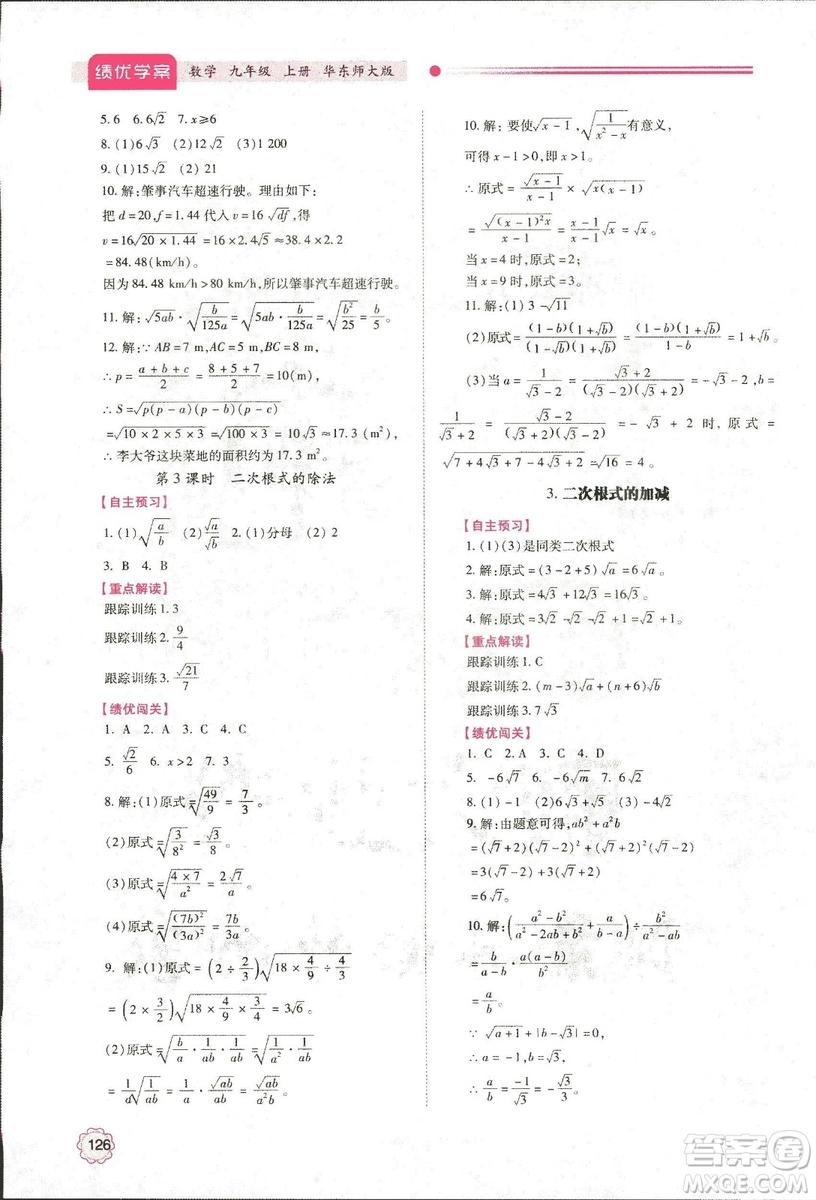 绩优学案 数学 九年级 上册 华东师大版
5.6 6.6√2 7.x≥6
8.(1)6√3 (2)12√2 (3)1 200
9.(1)15√2 (2)21
10.解:肇事汽车超速行驶。理由如下:
把 d=20,f=1.44 代入 v=16√(df),得
v=16√(20×1.44)=16×2.4√5≈38.4×2.2
=84.48(km/h)。
因为 84.48 km/h>80 km/h,所以肇事汽车超速行驶。
11.解:√(5ab)·√(b/(125a))=√(5ab·b/(125a))=√(b²/25)=b/5。
12.解:∵AB=7 m,AC=5 m,BC=8 m,
∴p=(a+b+c)/2=(8+5+7)/2=10(m),
∴S=√(p(p-a)(p-b)(p-c))
=√(10×2×5×3)=√(100×3)=10√3≈17.3(m²)
∴李大爷这块菜地的面积约为 17.3 m²。
第 3 课时 二次根式的除法
【自主预习】
1.(1)√(a/b) (2)√a/√b 2.(1)分母 (2)分母
3.B 4.B
【重点解读】
跟踪训练1.3
跟踪训练2.9/4
跟踪训练3.√21/7
【绩优闯关】
1.A 2.A 3.A 4.C
5.√2/6 6.x>2 7.√3
8.解:(1)原式=√(49/9)=7/3。
(2)原式=√(3/8²)=√3/8。
(3)原式=√((4×7)/a²)=2√7/a。
(4)原式=√((7b)²/(3a)²)=7b/3a。
9.解:(1)原式=(2÷2/3)√(18×4/9÷4/3)
=(2×3/2)√(18×4/9×3/4)=3√6。
(2)原式=√(b/a·1/(ab)·1/(ab))
=1/a√(1/(ab))=1/a×√(ab)/(ab)=√(ab)/(a²b)。
10.解:要使√(x-1),√(1/(x²-x))有意义,
可得 x-1>0,即 x>1。
∴原式=√(x-1)/(x-1)×√(x(x-1))
=√((x-1)²x)/(x-1)=(x-1)/(x-1)√x=√x。
当 x=4 时,原式=2;
当 x=9 时,原式=3。
11.解:(1)3-√11
(2)原式=(1-b)(1+√b)/((1-√b)(1+√b))=(1-b)(1+√b)/(1-b)=1+√b。
(3)当 a=1/(√3-2)=(√3+2)/((√3-2)(√3+2))=-√3-2,b=
1/(√3+2)=(√3-2)/((√3+2)(√3-2))=-√3+2 时,原式=
√(7+4√3+7-4√3+2)=√16=4。
3.二次根式的加减
【自主预习】
1.(1)(3)是同类二次根式
2.解:原式=(3-2+5)√a=6√a。
3.解:原式=4√3+12√3=16√3。
4.解:原式=3√2-√2-√2+1=√2+1。
【重点解读】
跟踪训练1.C
跟踪训练2.(m-3)√a+(n+6)√b
跟踪训练3.7√3
【绩优闯关】
1.C 2.C 3.A 4.D
5.-6√7 6.-6√m 7.>
8.(1)-1 (2)6√3+√5 (3)4√2
9.解:由题意可得,ab²+a²b
=(√7+2)(√7-2)²+(√7+2)²(√7-2)
=3(√7-2)+3(√7+2)
=6√7。
10.解:((a²-b²)/(a²-2ab+b²)+a/(b-a))÷b²/(a²-ab)
=b/(a-b)·a(a-b)/b²
=a/b。
∵√(a+1)+|b-√3|=0,
∴a=-1,b=√3,
∴原式=a/b=-1/√3=-√3/3。
126
答案圈
MXQE.COM